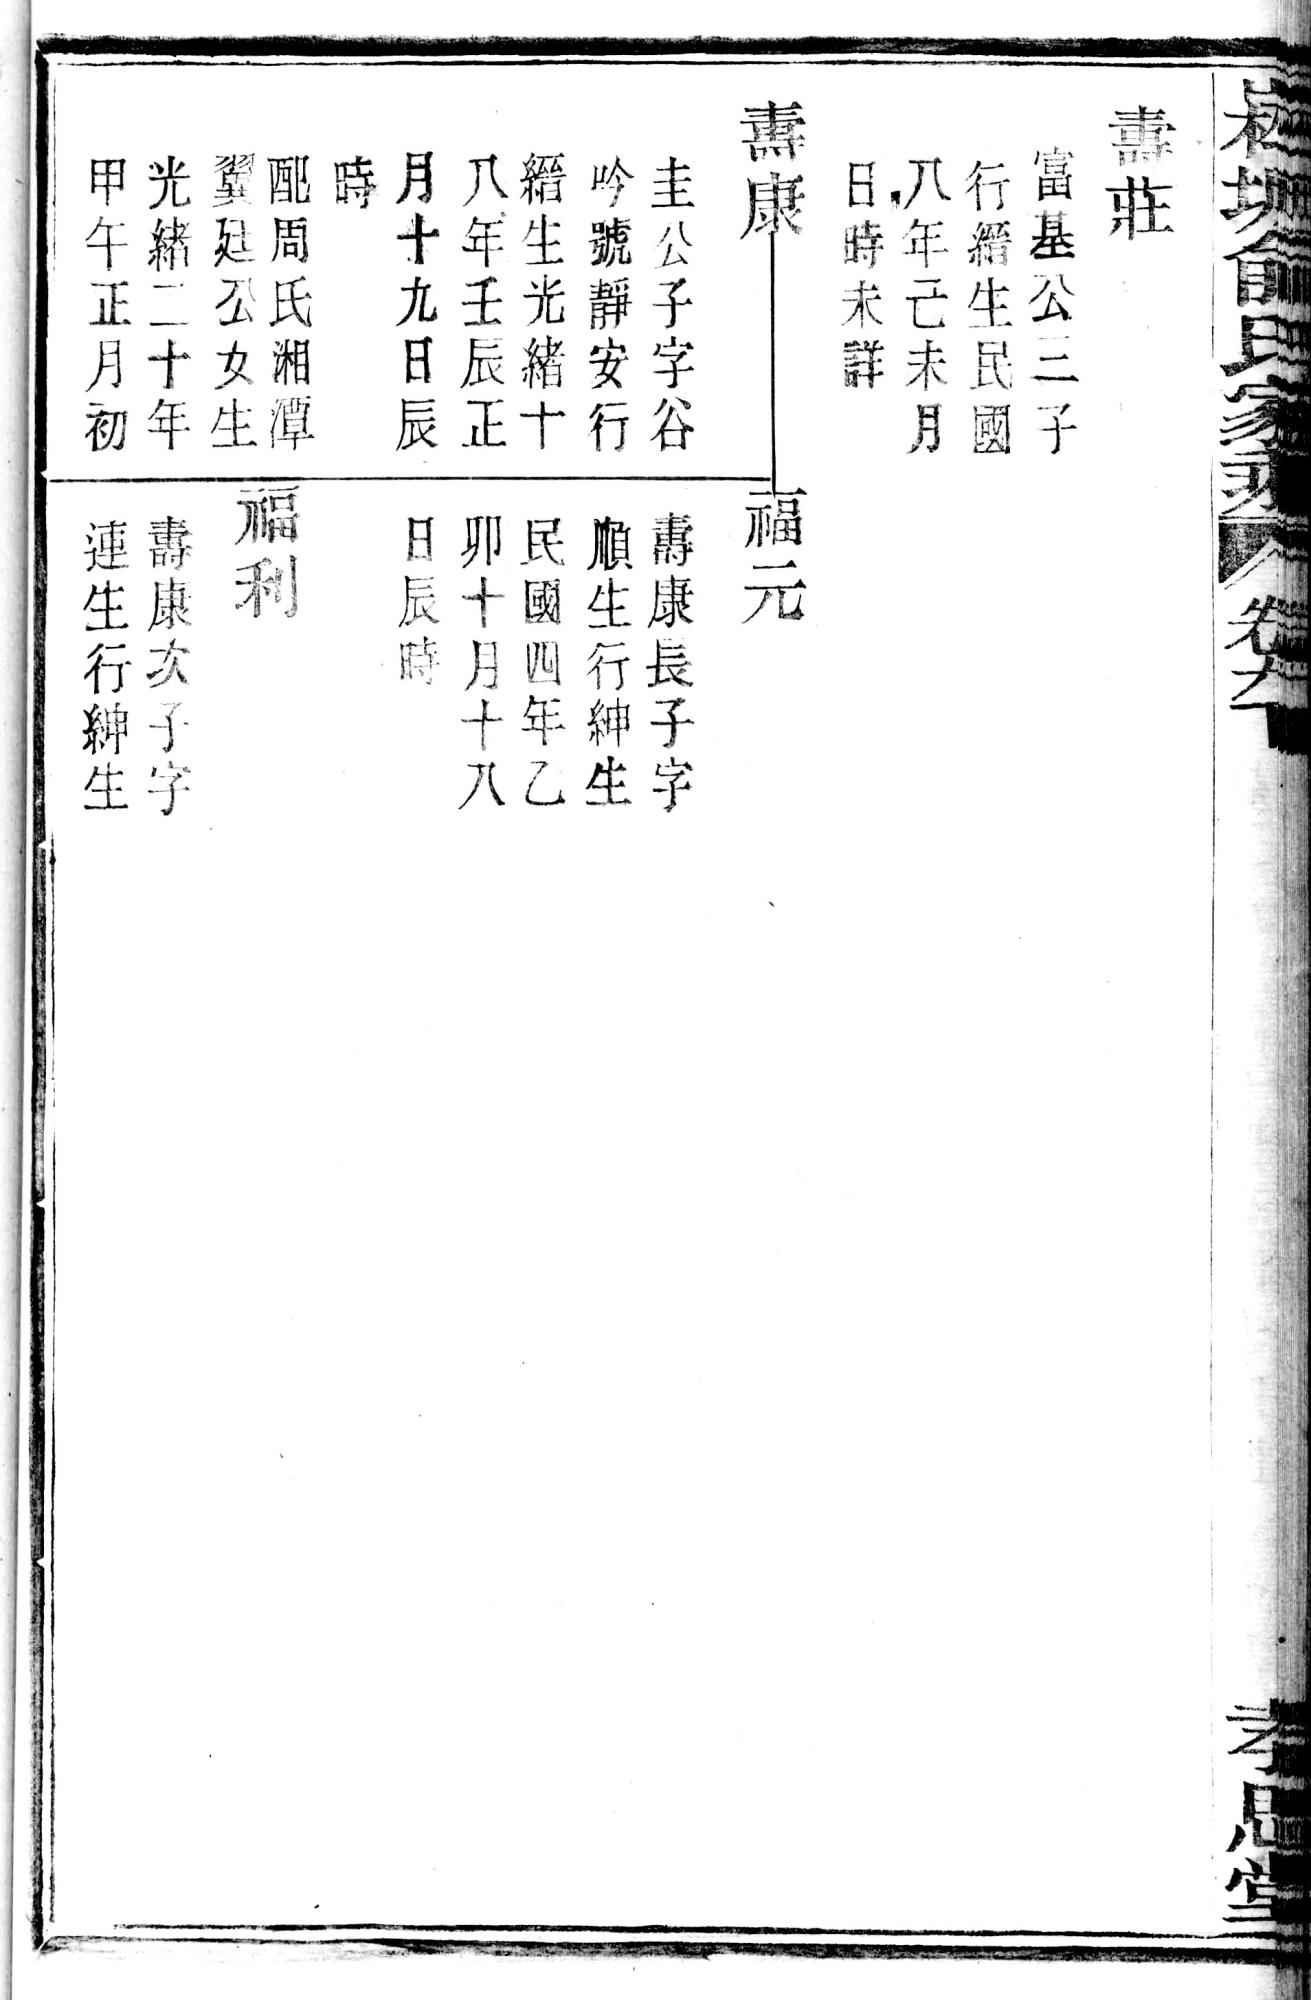 氏家乘 卷 孝思堂
壽莊
富基公三子
行縉生民國
八年己未月
日時未詳
壽康
圭公子字谷
吟號靜安行
縉生光緒十
八年壬辰正
月十九日辰
時
配周氏湘潭
翼廷公女生
光緒二十年
甲午正月初
福元
壽康長子字
順生行紳生
民國四年乙
卯十月十八
日辰時
福利
壽康次子字
連生行紳生